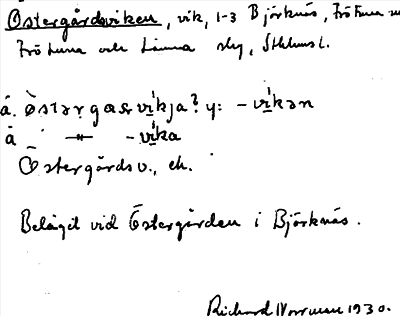 Östergårdsviken, vik, 1-3 Björknäs, Frötuna
Frötuna och Länna skg, Sthlms l.
å. Östərgaṣvikja? y: -vikən
å -"- -vika
Östergårdsv., ek.
Beläget vid Östergården i Björknäs.
Richard Norrman 1930.